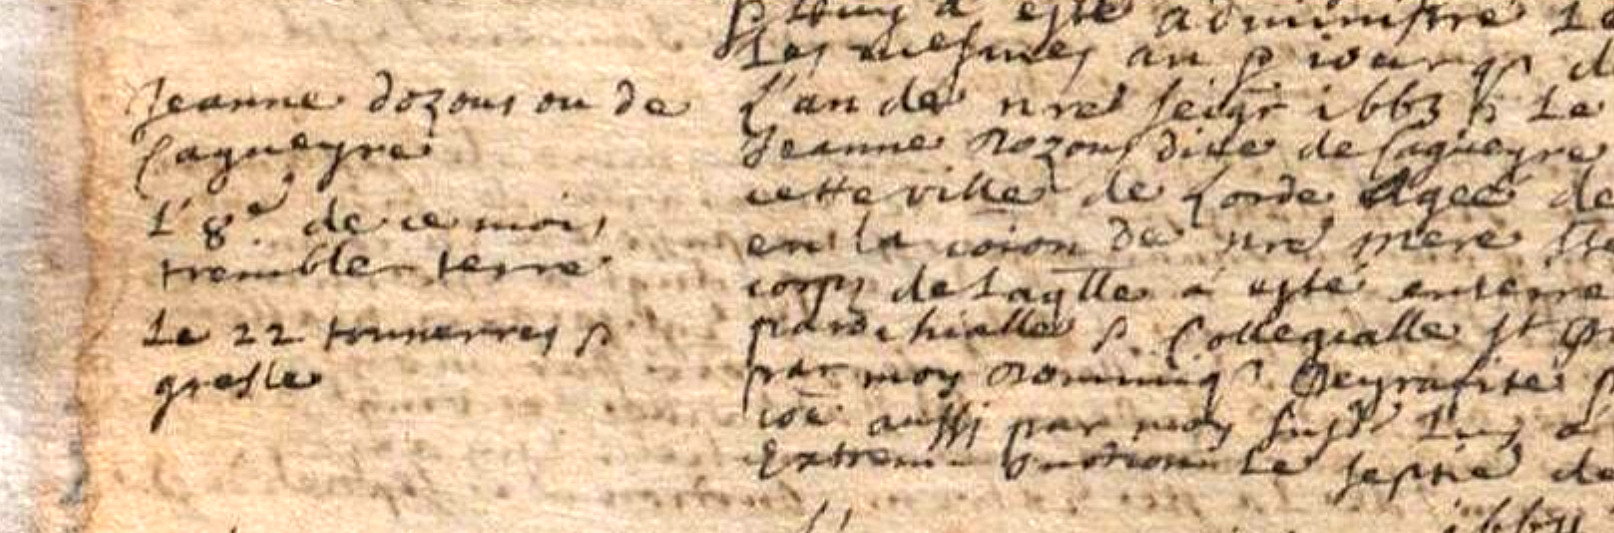 Jeanne dozous ou de
Cagueyre
L'8e de ce mois
tremble terre
Le 22 tonnerres
gresle
a esté administré
Les mesmes an
L'an de nre seigr 1663 Le
Jeanne Dozous dite de Cagueyre
cette ville de Lorde Agée de
en la coion de nre mere Ste
corps de Laqlle a esté enterré
parochialle Collegialle St
par moy Dominiq Peyrafite
coe aussi par moy susd
Extreme onction Le septie de